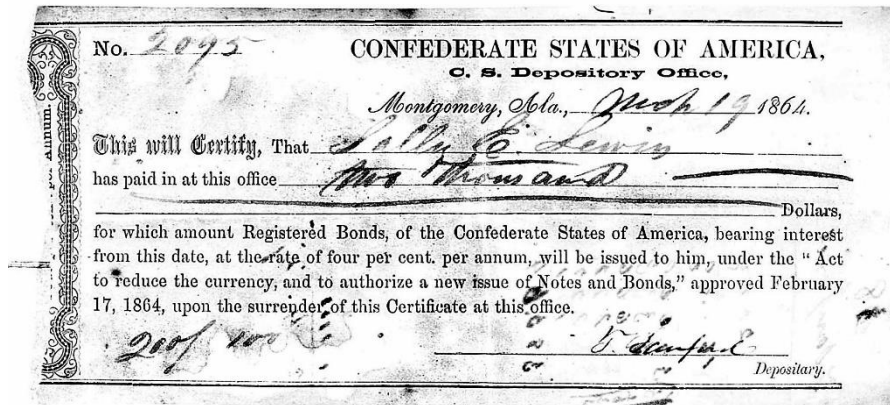 No. 2095
CONFEDERATE STATES OF AMERICA,
C. S. Depository Office,
Montgomery, Ala., Mch 19 1864.
This will Certify, That Sally E. Lewin
has paid in at this office Two Thousand
Dollars,
for which amount Registered Bonds, of the Confederate States of America, bearing interest
from this date, at the rate of four per cent. per annum, will be issued to him, under the "Act
to reduce the currency, and to authorize a new issue of Notes and Bonds," approved February
17, 1864, upon the surrender of this Certificate at this office.
Depositary.
per Annum.